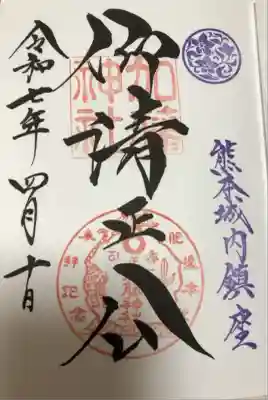 熊本城内鎮座
仰清正公
加藤
神社
令和七年 四月十日